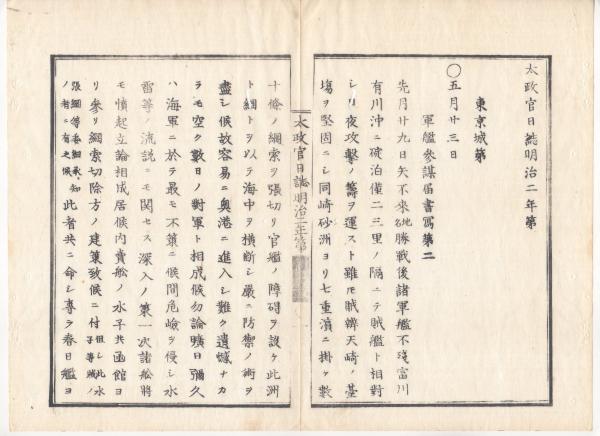 太政官日誌明治二年第
東京城第
○五月廿三日
軍艦參謀届書寫第二
先月廿九日矢不來地勝戰後諸軍艦不殘富川
有川沖ニ碇泊僅二三里ノ隔ニテ賊艦ト相對
シ日夜攻擊ノ籌ヲ運スト雖モ賊辨天崎ノ臺
場ヲ堅固ニシ同崎砂洲ヨリ七重濱ニ掛ケ數
太政官日誌明治二年第
十條ノ綱索ヲ張切リ官艦ノ障碍ヲ設ケ此洲
ト綱トヲ以テ海中ヲ横斷シ嚴ニ防禦ノ術ヲ
盡シ候故容易ニ奥港ニ進入シ難ク遺憾ナカ
ラモ空ク數日ノ對軍ト相成候勿論曠日彌久
ハ海軍ニ於テ最モ不策ニ候間危嶮ヲ侵シ水
雷等ノ流説ニモ関セス深入ノ策一次諸船將
モ憤起立論相成居候内賣船ノ水子共函館ヨ
リ參リ綱索切除方ノ建策致候ニ付
但シ此水子等賊ノ
張綱等委細承知ノ者ニ有之候
此者共ニ命シ專ラ春日艦ヨ